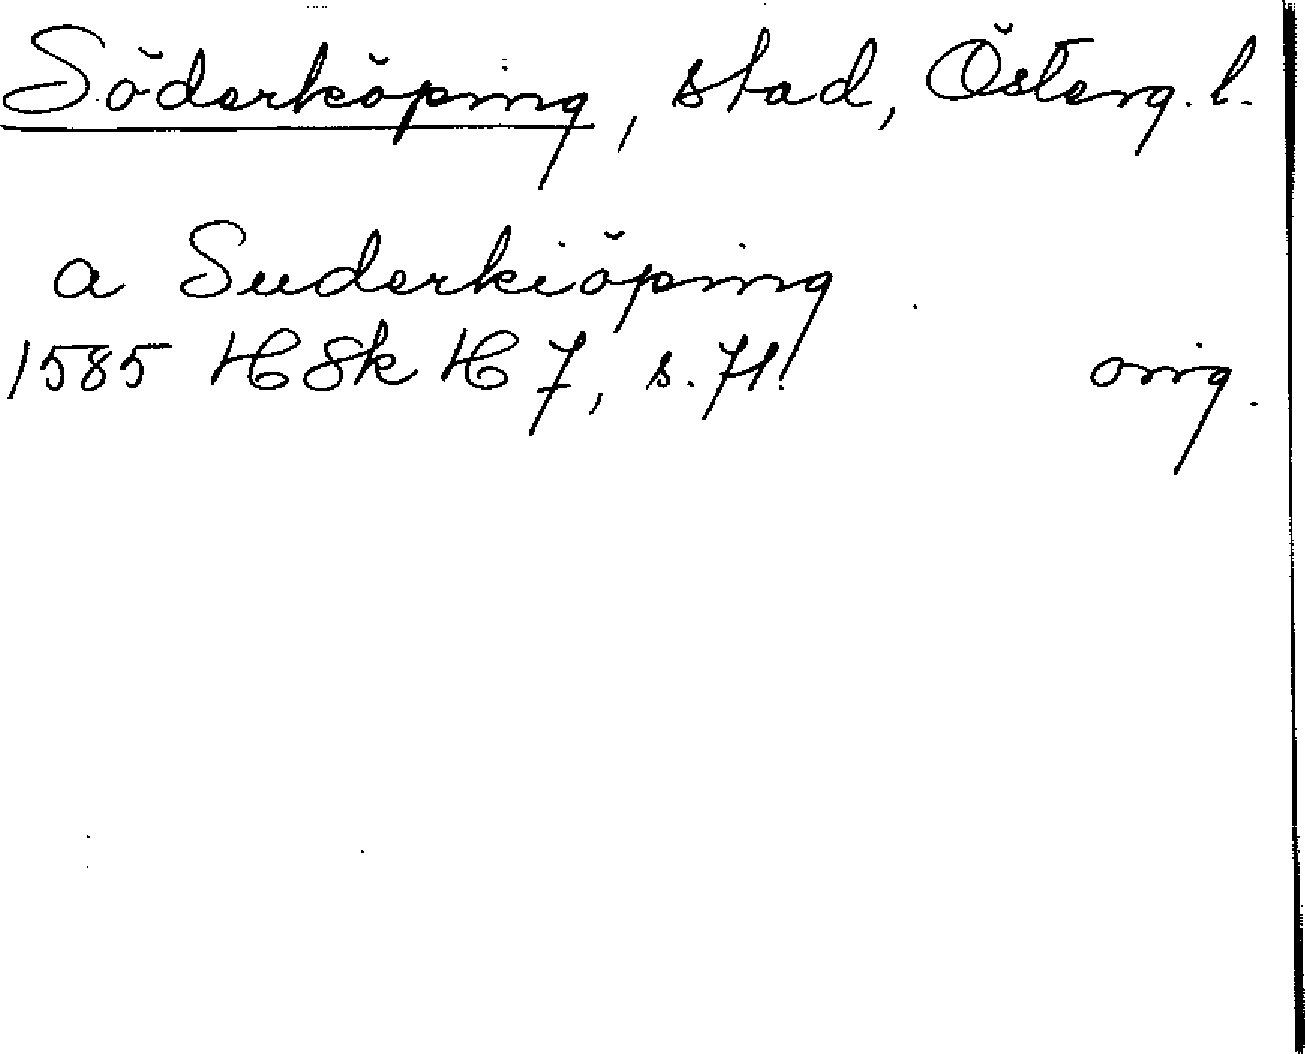 Söderköping, stad, Österg. l.
a Suderkiöping
1585 HSk H 7, s. 71. orig.